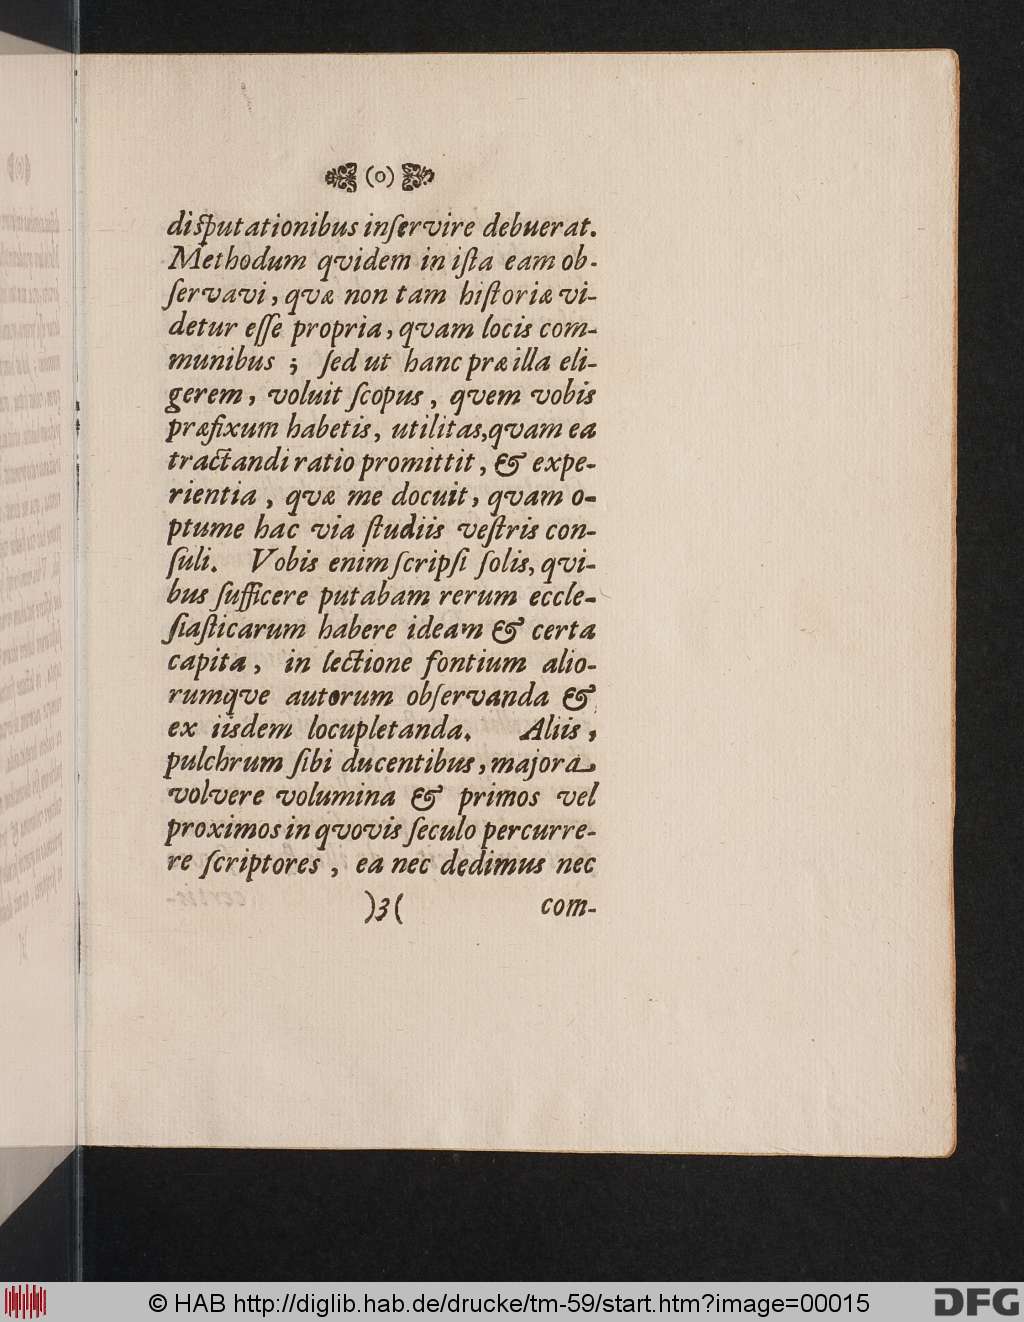 (o)
disputationibus inſervire debuerat.
Methodum qvidem in iſta eam ob-
ſervavi, qvæ non tam hiſtoriæ vi-
detur eſſe propria, qvam locis com-
munibus ; ſed ut hanc præ illa eli-
gerem, voluit ſcopus, qvem vobis
præfixum habetis, utilitas, qvam ea
tractandi ratio promittit, & expe-
rientia, qvæ me docuit, qvam o-
ptume hac via ſtudiis veſtris con-
ſuli. Vobis enim ſcripſi ſolis, qvi-
bus ſufficere putabam rerum eccle-
ſiaſticarum habere ideam & certa
capita, in lectione fontium alio-
rumqve autorum obſervanda &
ex iisdem locupletanda. Aliis,
pulchrum ſibi ducentibus, majora
volvere volumina & primos vel
proximos in qvovis ſeculo percurre-
re ſcriptores, ea nec dedimus nec
)3( com-
© HAB http://diglib.hab.de/drucke/tm-59/start.htm?image=00015
DFG